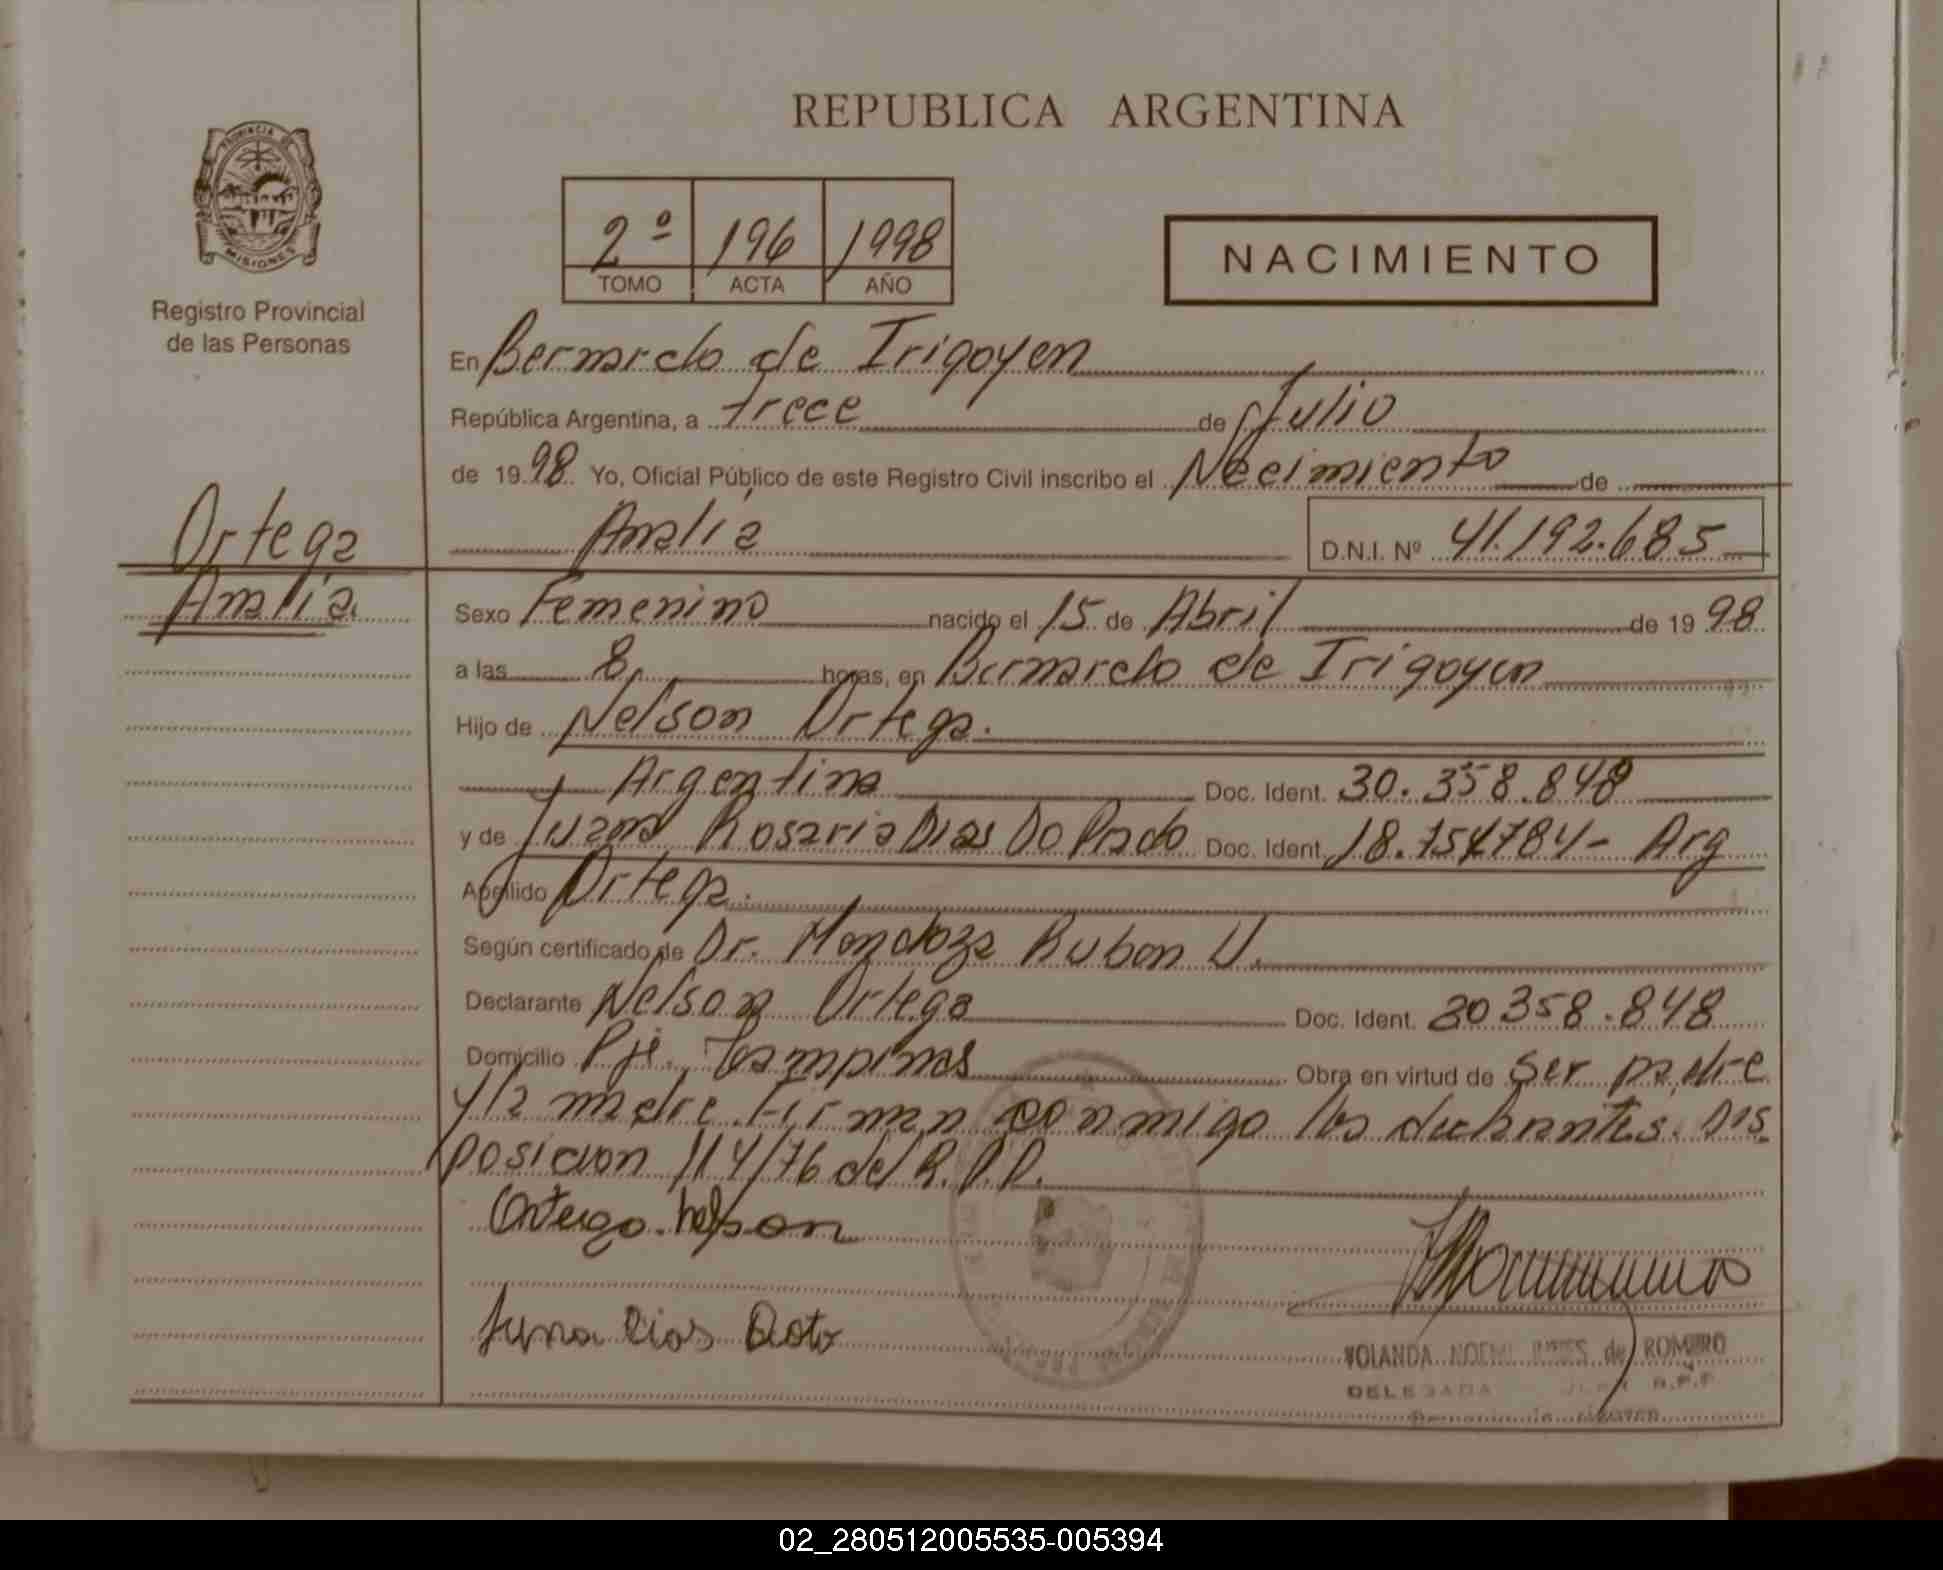 REPUBLICA ARGENTINA
PROVINCIA DE
MISIONES
Registro Provincial
de las Personas
2º 196 1998
TOMO ACTA AÑO
NACIMIENTO
En Bernardo de Irigoyen
República Argentina, a trece de Julio
de 1998 Yo, Oficial Público de este Registro Civil inscribo el Nacimiento de
Analia D.N.I. Nº 41.192.685
Ortega
Analia
Sexo Femenino nacido el 15 de Abril de 1998
a las 8 horas, en Bernardo de Irigoyen
Hijo de Nelson Ortega.
Argentina Doc. Ident. 30.358.848
y de Juana Rosaria Dias Do Prado Doc. Ident. 18.754784- Arg
Apellido Ortega.
Según certificado de Dr. Mendoza Ruben
Declarante Nelson Ortega Doc. Ident. 30358.848
Domicilio Pje. Obra en virtud de ser padre
y la madre. Firman conmigo los declarantes. Dis
posicion 114/76 del R.P.P.
Ortega. Nelson
Juna Dias
YOLANDA NOEMI de ROMERO
DELEGADA R.P.P.
02_280512005535-005394